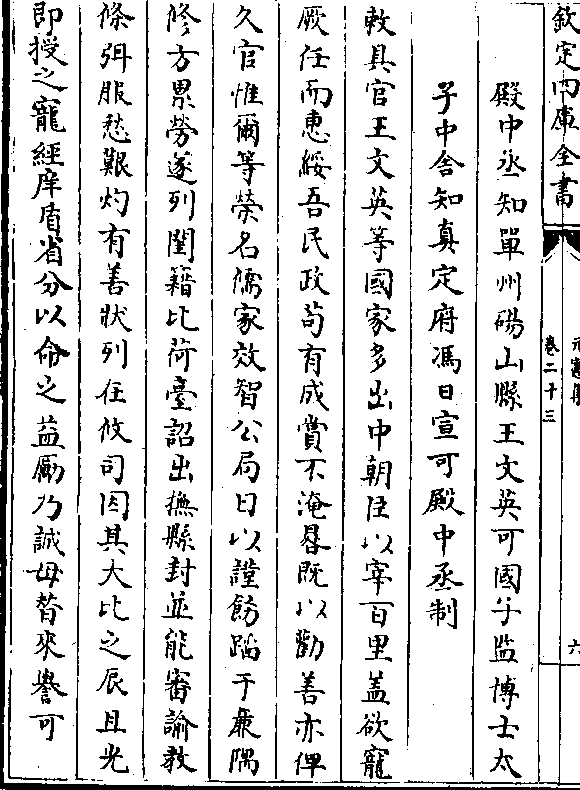 欽定四庫全書
元憲集
卷二十三
六
殿中丞知單州碭山縣王文英可國子監博士太
子中舍知真定府馮日宣可殿中丞制
敕具官王文英等國家多出中朝臣以宰百里蓋欲寵
厥任而惠綏吾民政苟有成賞不淹晷既以勸善亦俾
久官惟爾等榮名儒家效智公局日以謹飭蹈于亷隅
修方累勞遂列閨籍比荷臺詔出撫縣封並能審諭教
條弭服愁艱灼有善狀列在攸司因其大比之辰且光
即授之寵經庠盾省分以命之益勵乃誠毋替來譽可